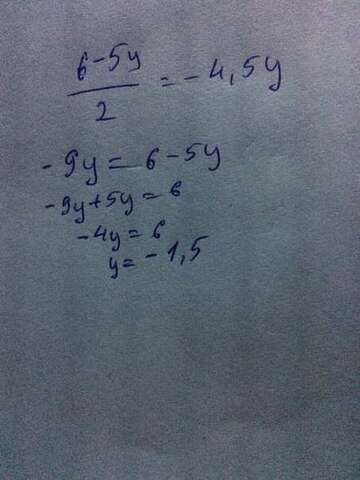 6-5y
2
= -4,5y
-9y = 6-5y
-9y+5y = 6
-4y = 6
y = -1,5